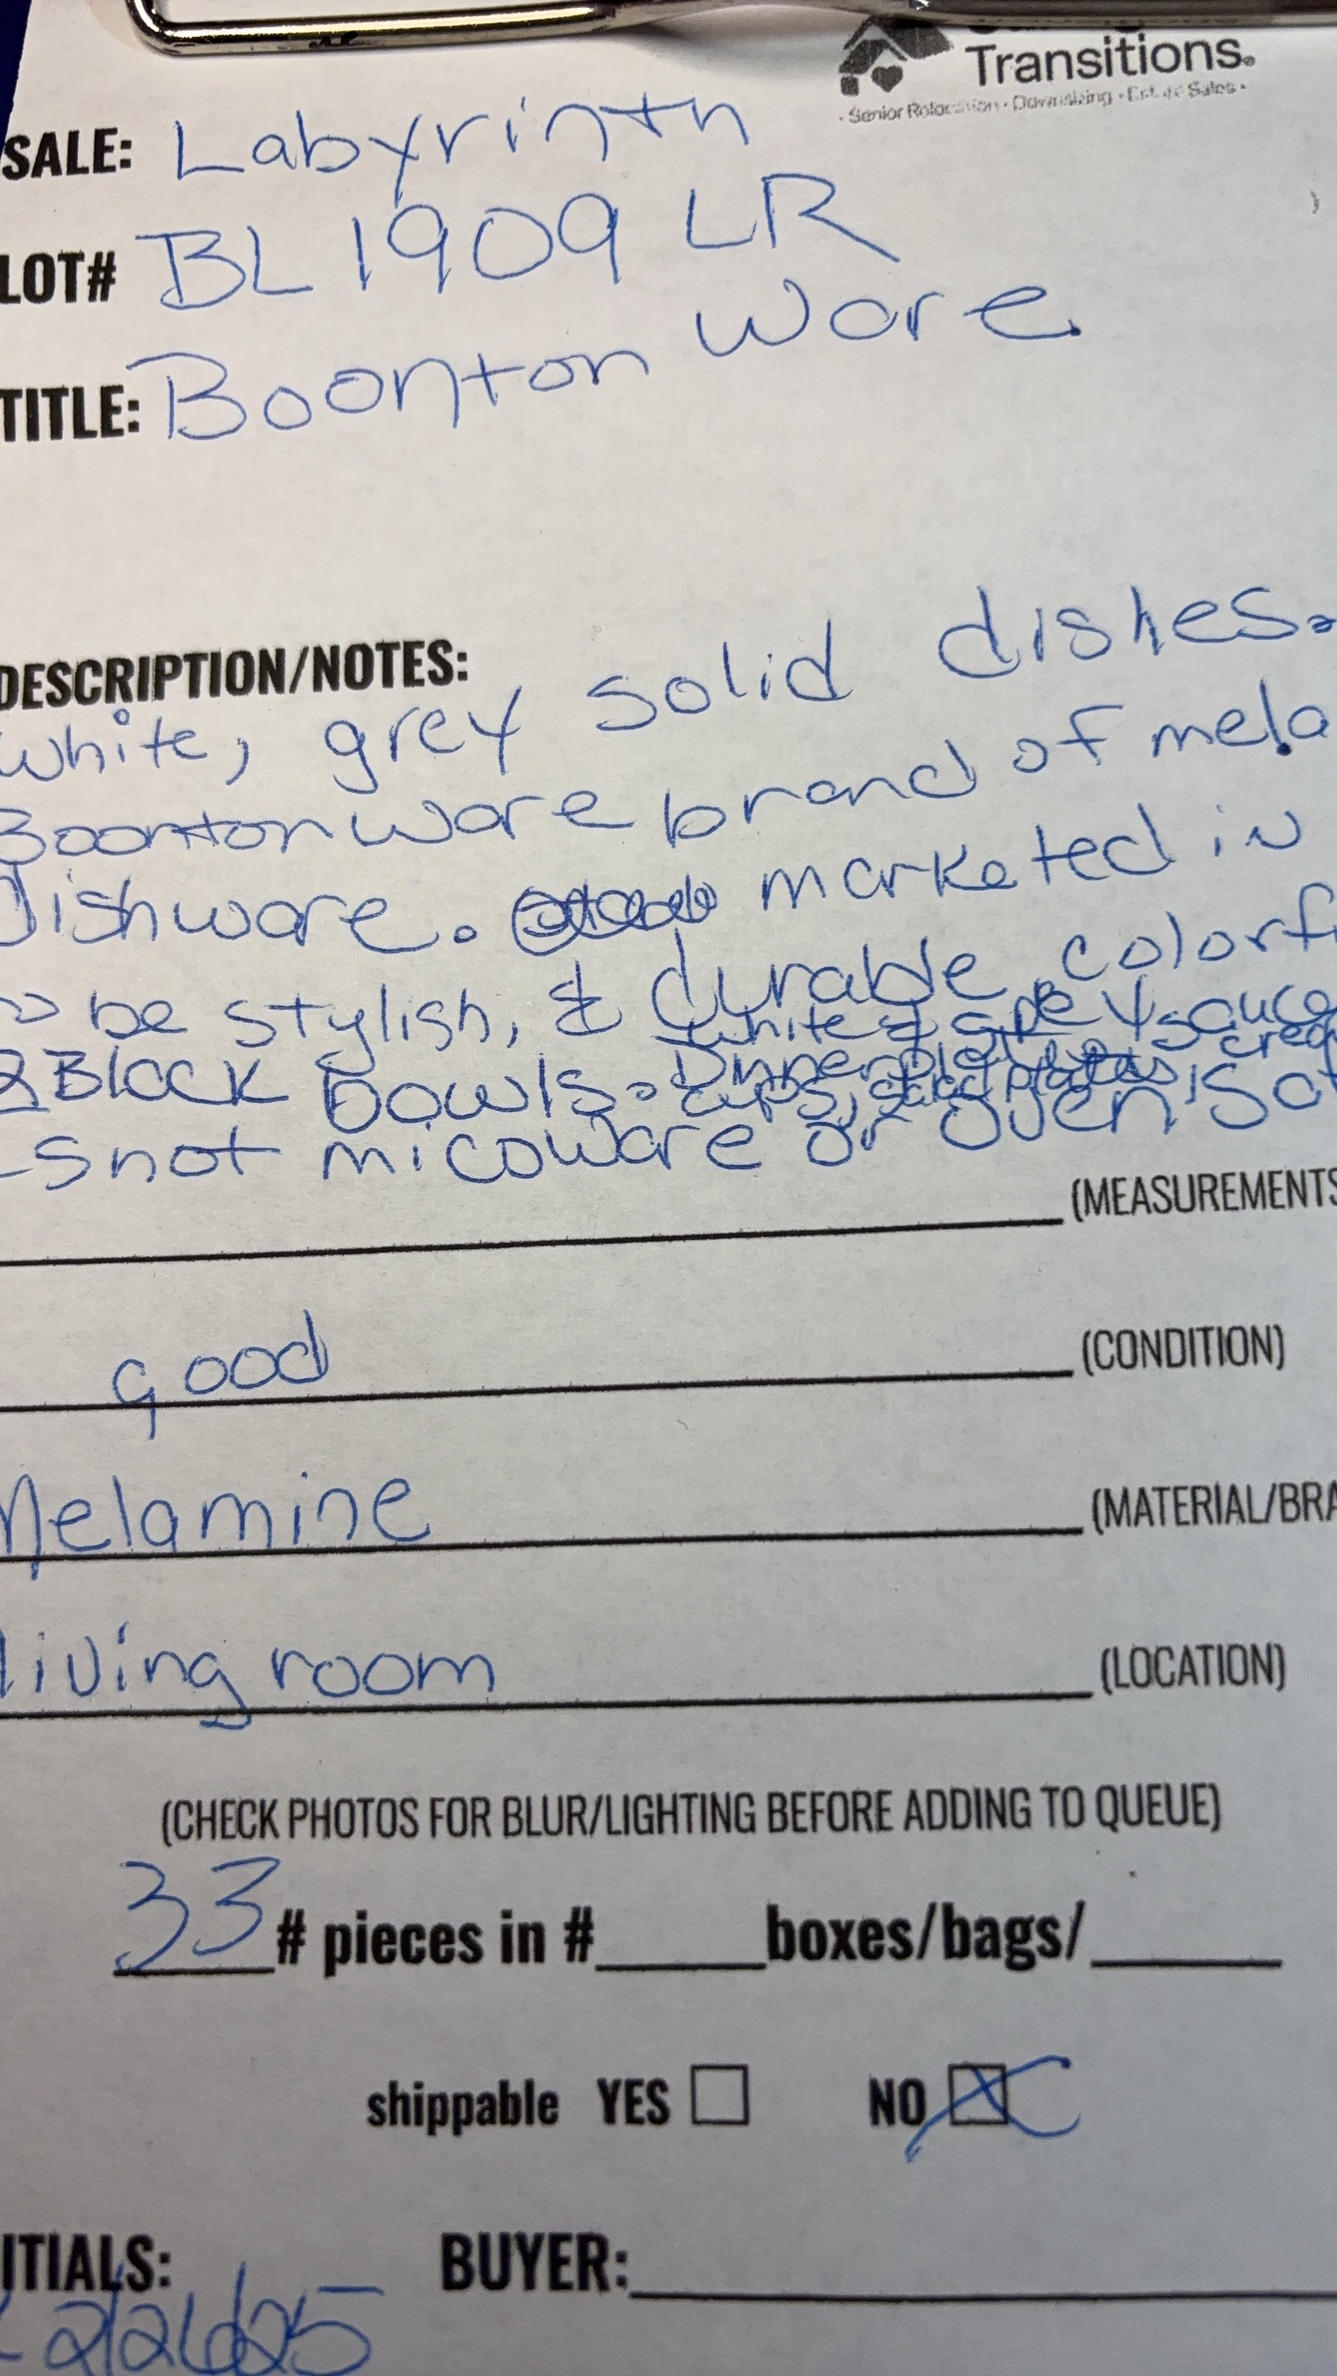 Transitions.
· Senior Relocation · Downsizing · Estate Sales ·
SALE: Labyrinth
LOT# BL 1909 LR
TITLE: Boonton ware
DESCRIPTION/NOTES:
white, grey solid dishes.
Boontonware brand of mela
Dishware. marketed in
to be stylish, & durable, colorf
white & grey sauce
2 Black bowls. Dinner plates
cups,
snot micoware or oven saf
(MEASUREMENTS
good (CONDITION)
Melamine (MATERIAL/BRA
living room (LOCATION)
(CHECK PHOTOS FOR BLUR/LIGHTING BEFORE ADDING TO QUEUE)
33 # pieces in # boxes/bags/
shippable YES NO
ITIALS: BUYER:
2/26/25